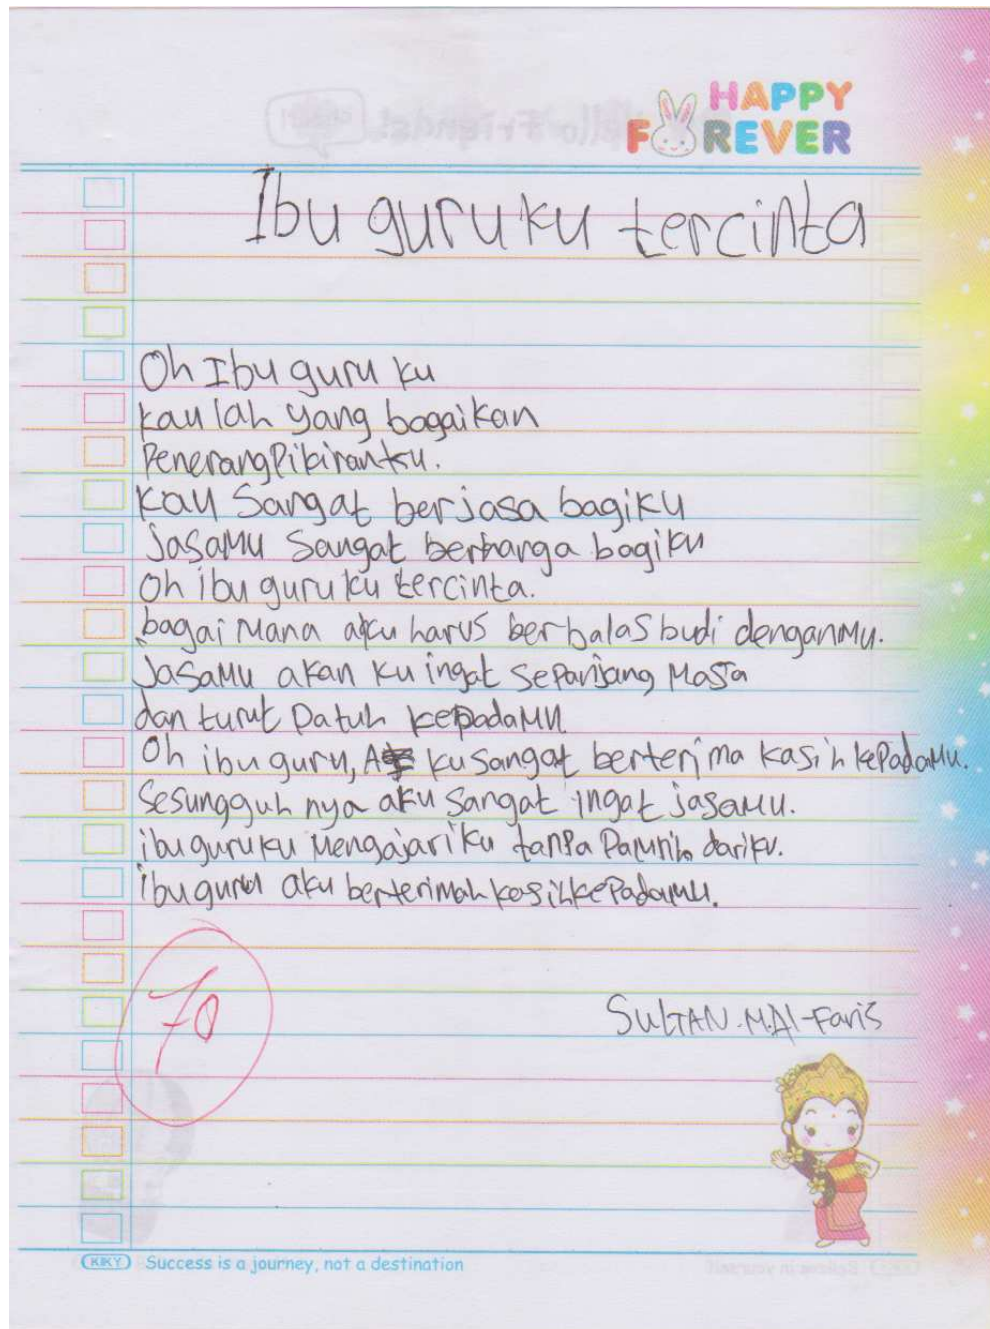 HAPPY
FOREVER
Ibu guruku tercinta
Oh Ibu guru ku
kau lah yang bagaikan
Penerang Pikiranku.
kau Sangat berjasa bagiku
jasaMu Sangat berharga bagiku
Oh ibu guru ku tercinta.
bagai Mana aku harus berbalas budi denganMu.
JasaMu akan ku ingat sePanjang Masa
dan turut Patuh kepadaMu
Oh ibu guru, A ku sangat berterima kasih kePadaMu.
Sesungguh nya aku Sangat ingat jasaMu.
ibu guruku Mengajariku tanPa PaMrih dariku.
ibu guru aku berterimah kasih kePadaMu.
70
SULTAN.M.Al-Faris
KIKY Success is a journey, not a destination